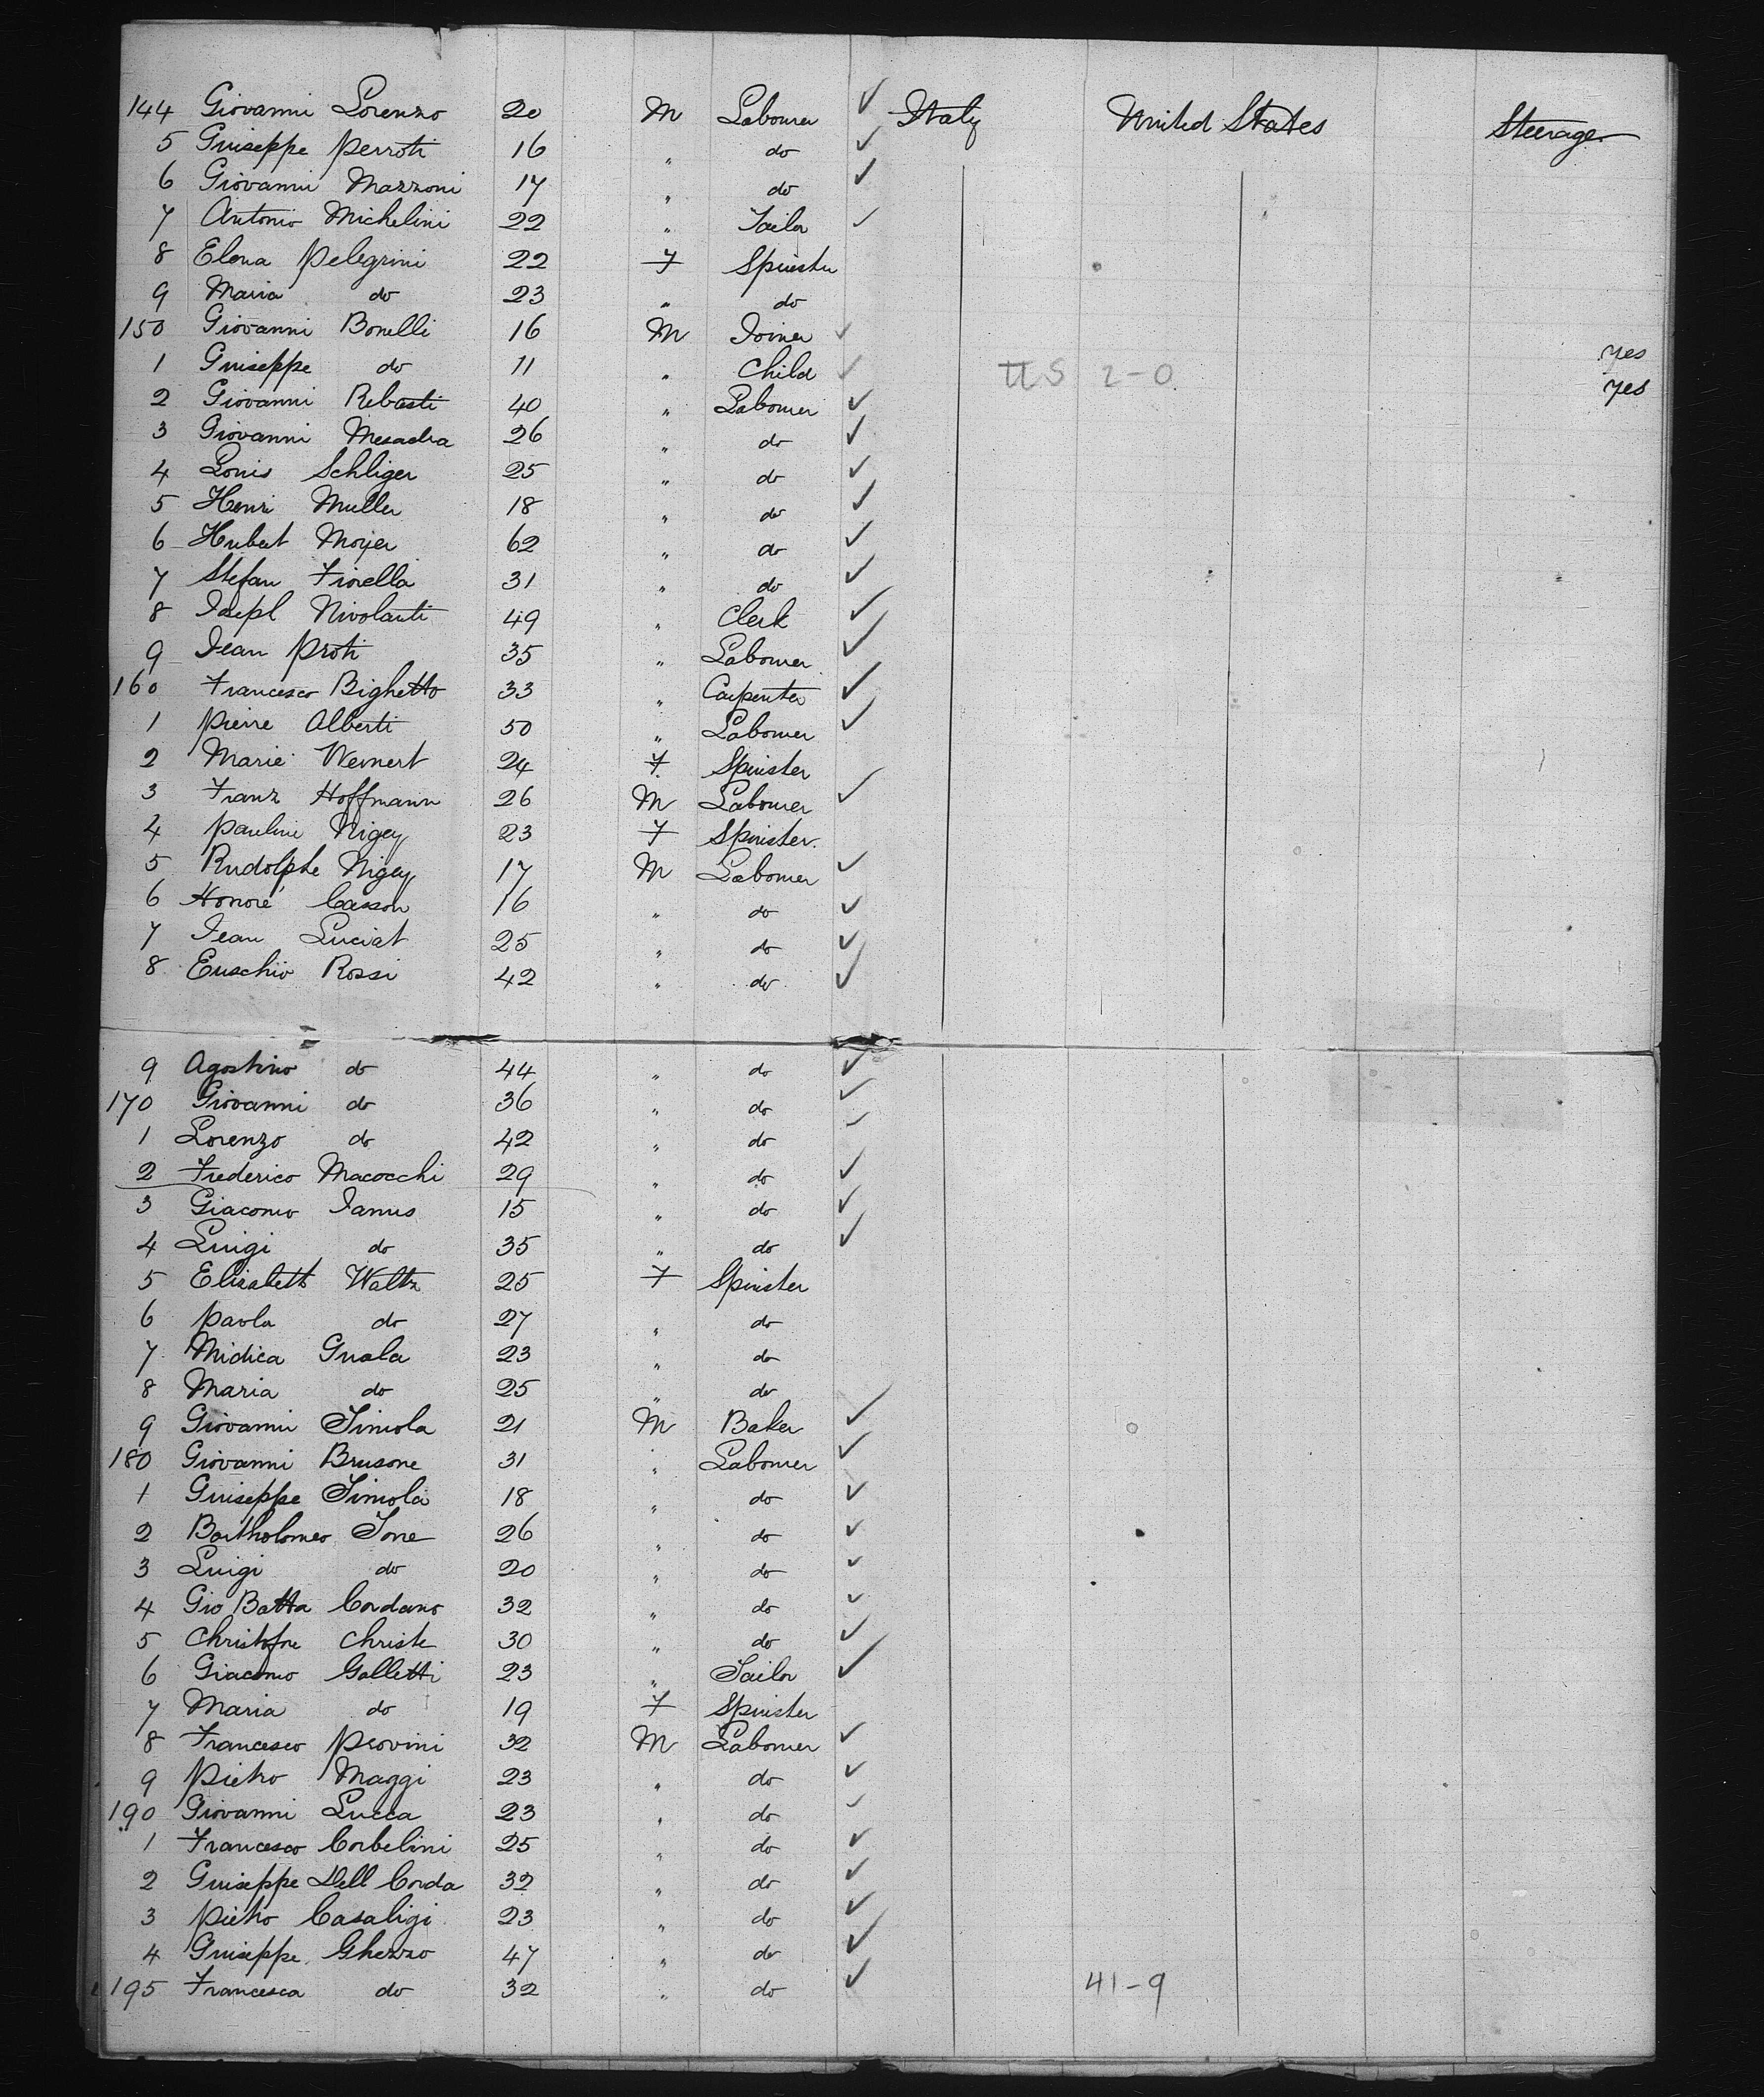 144 Giovanni Lorenzo 20 M Labourer ✓ Italy United States Steerage
5 Guiseppe Perroti 16 " do ✓
6 Giovanni Mazzoni 17 " do ✓
7 Antonio Michelini 22 " Tailor ✓
8 Elena Pelegrini 22 F Spinster
9 Maria do 23 " do
150 Giovanni Bonelli 16 M Joiner ✓
1 Guiseppe do 11 " Child ✓ US 2-0 yes
2 Giovanni Rebasti 40 " Labourer ✓ yes
3 Giovanni Mesadra 26 " do ✓
4 Louis Schliger 25 " do ✓
5 Henri Muller 18 " do ✓
6 Hubert Moyer 62 " do ✓
7 Stefan Fiorella 31 " do ✓
8 Nivolanti 49 " Clerk ✓
9 Jean Proti 35 " Labourer ✓
160 Francesco Bighetto 33 " Carpenter ✓
1 Pierre Alberti 50 " Labourer ✓
2 Marie Wernert 24 F Spinster
3 Franz Hoffmann 26 M Labourer ✓
4 Pauline Nigey 23 F Spinster.
5 Rudolphe Nigey 17 M Labourer ✓
6 Honoré Casson 16 " do ✓
7 Jean Luciat 25 " do ✓
8 Euschio Rossi 42 " do ✓
9 Agostino do 44 " do ✓
170 Giovanni do 36 " do ✓
1 Lorenzo do 42 " do ✓
2 Frederico Macocchi 29 " do ✓
3 Giacomo Janus 15 " do ✓
4 Luigi do 35 " do ✓
5 Elizabeth Waltz 25 F Spinster
6 Paola do 27 " do
7 Midica Guala 23 " do
8 Maria do 25 " do
9 Giovanni Simola 21 M Baker ✓
180 Giovanni Brusone 31 " Labourer ✓
1 Guiseppe Simola 18 " do ✓
2 Bartholomeo Sone 26 " do ✓
3 Luigi do 20 " do ✓
4 Gio Batta Cordano 32 " do ✓
5 Christofne Christe 30 " do ✓
6 Giacomo Galletti 23 " Tailor ✓
7 Maria do 19 F Spinster
8 Francesco Provini 32 M Labourer ✓
9 Pietro Maggi 23 " do ✓
190 Giovanni Lucca 23 " do ✓
1 Francesco Corbelini 25 " do ✓
2 Guiseppe Dell Corda 32 " do ✓
3 Pietro Casaligi 23 " do ✓
4 Guiseppe Ghezzo 47 " do ✓
195 Francesca do 32 " do ✓ 41-9